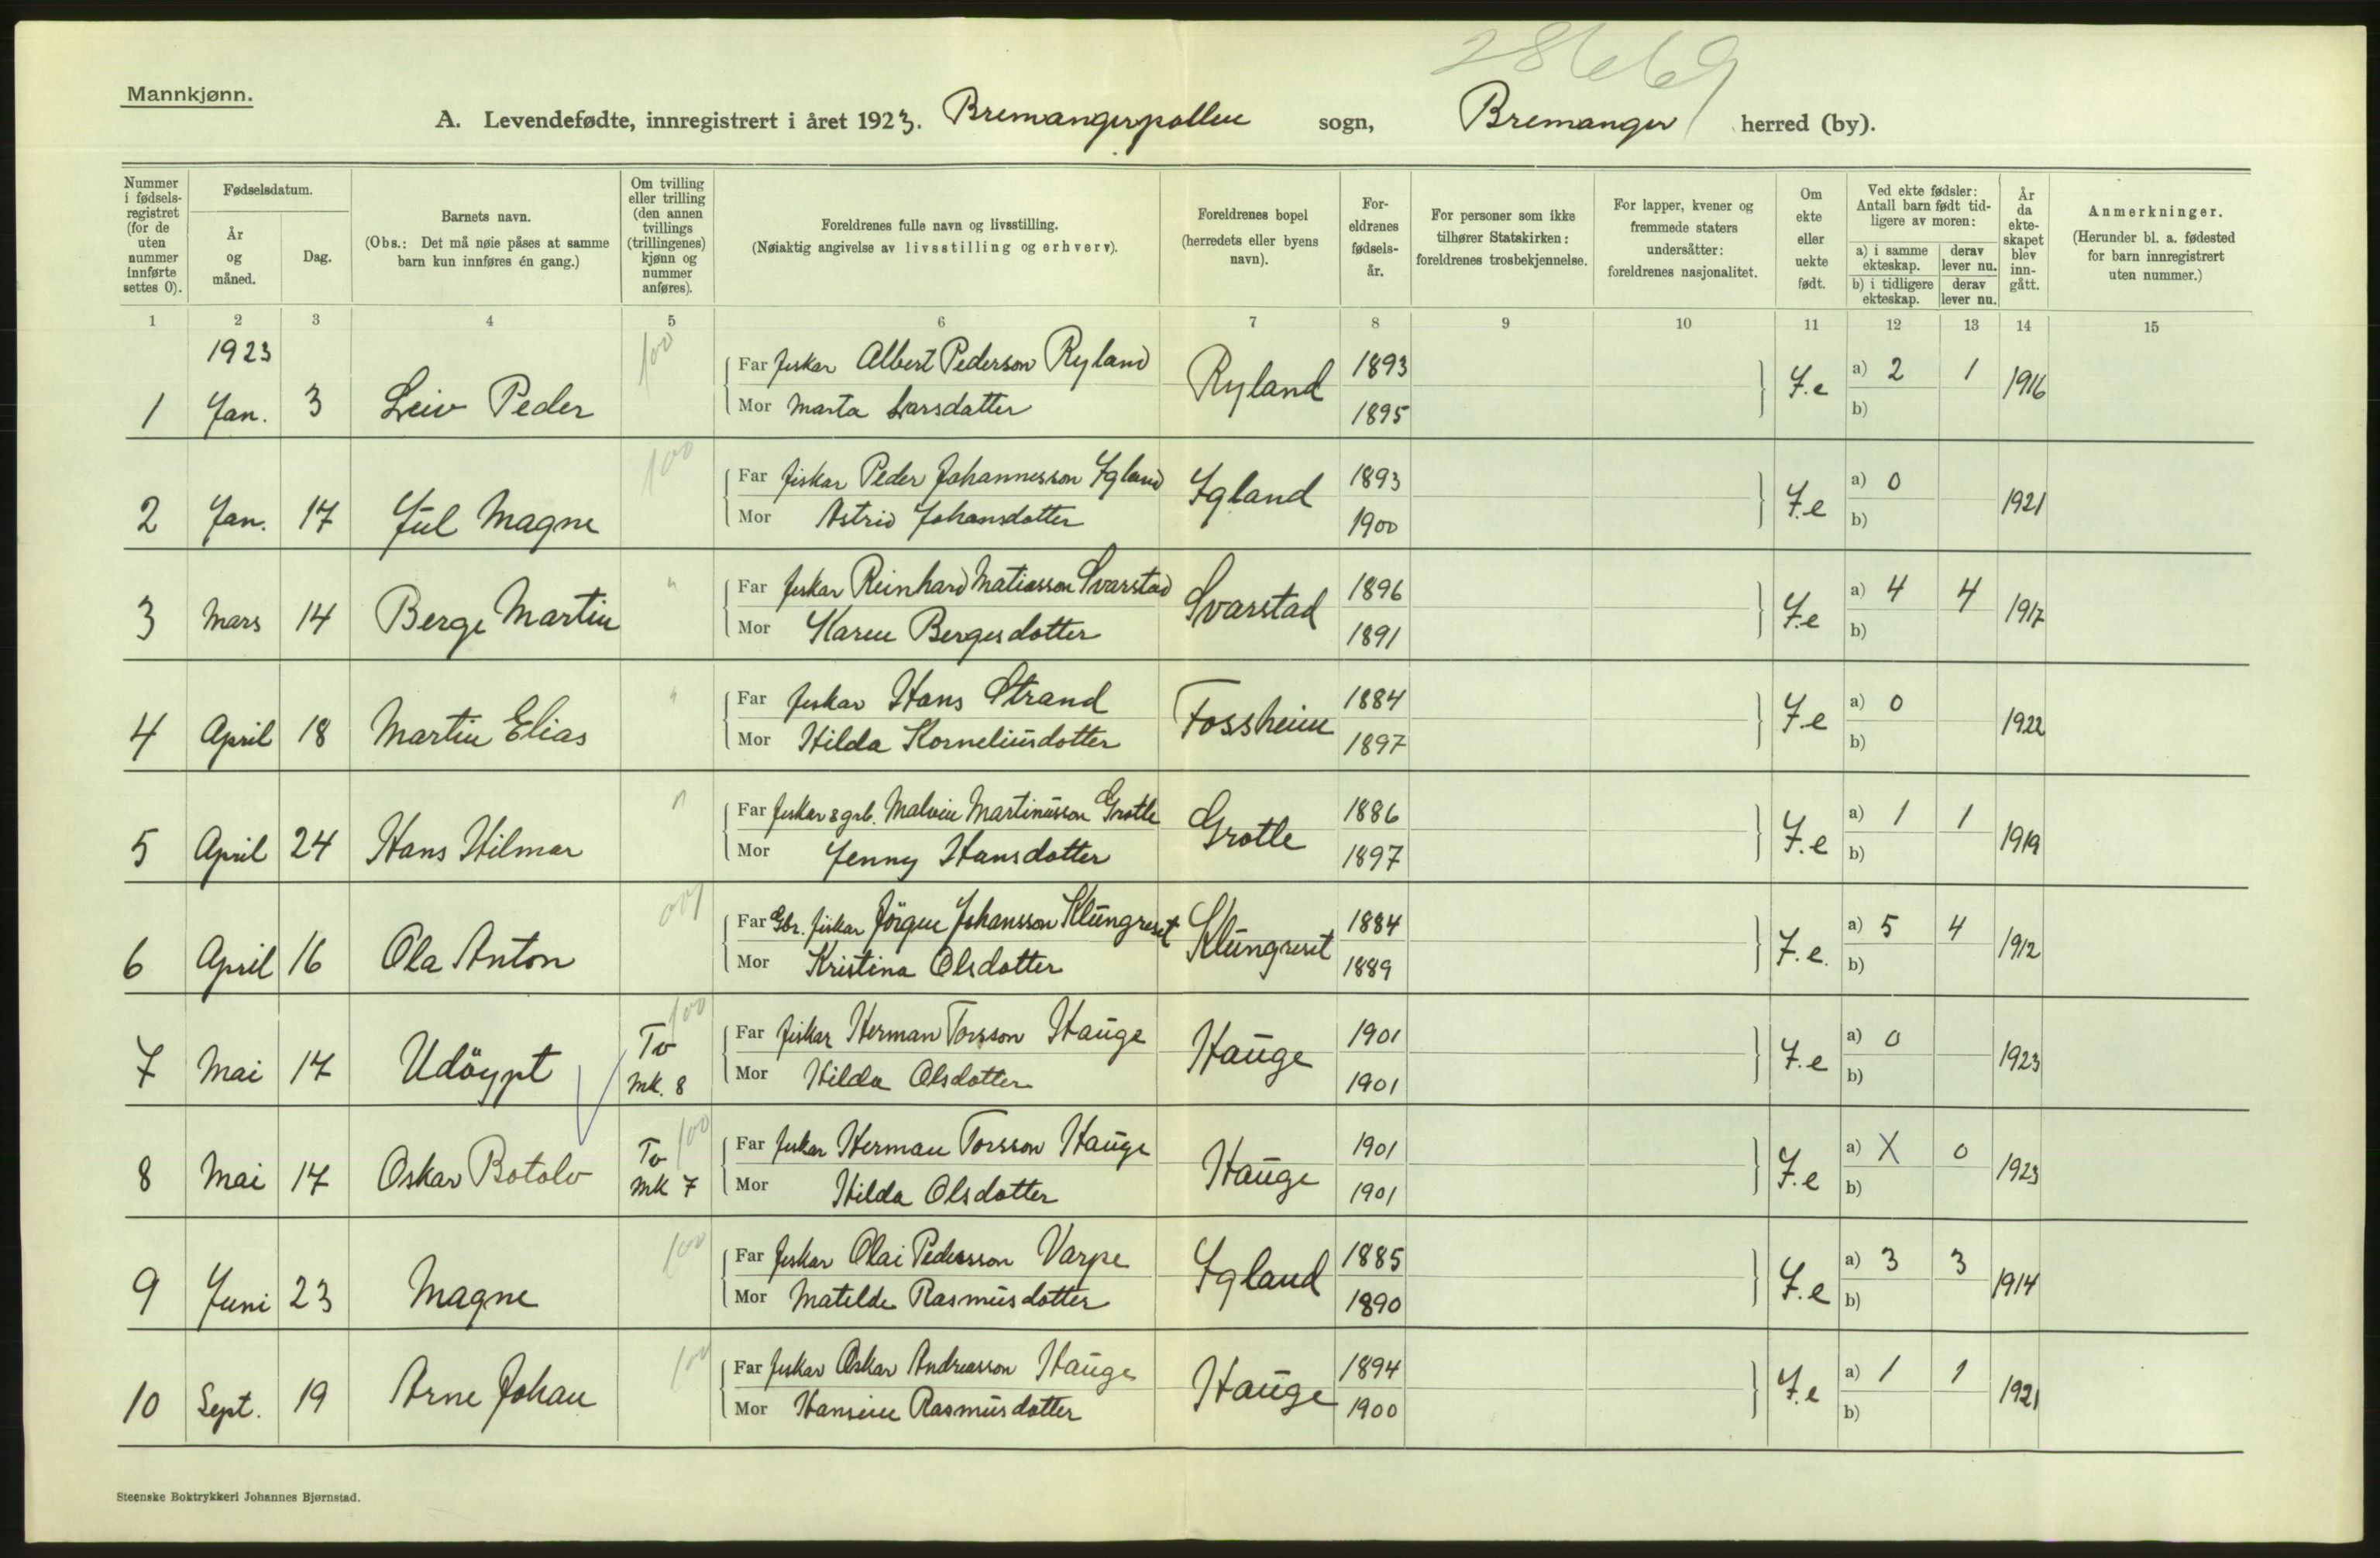 28669
Mannkjønn.
A. Levendefødte, innregistrert i året 1923. Bremangerpollen sogn, Bremanger herred (by).
Nummer i fødsels-registret (for de uten nummer innførte settes 0).
Fødselsdatum.
År og måned.
Dag.
Barnets navn.
(Obs.: Det må nøie påses at samme barn kun innføres én gang.)
Om tvilling eller trilling (den annen tvillings (trillingenes) kjønn og nummer anføres).
Foreldrenes fulle navn og livsstilling.
(Nøiaktig angivelse av livsstilling og erhverv).
Foreldrenes bopel (herredets eller byens navn).
For-eldrenes fødsels-år.
For personer som ikke tilhører Statskirken: foreldrenes trosbekjennelse.
For lapper, kvener og fremmede staters undersåtter: foreldrenes nasjonalitet.
Om ekte eller uekte født.
Ved ekte fødsler: Antall barn født tid-ligere av moren:
a) i samme ekteskap.
derav lever nu.
b) i tidligere ekteskap.
derav lever nu.
År da ekte-skapet blev inn-gått.
Anmerkninger.
(Herunder bl. a. fødested for barn innregistrert uten nummer.)
1 2 3 4 5 6 7 8 9 10 11 12 13 14 15
1923
100
Far fiskar Albert Pederson Ryland 1893 a) 2 1
1 Jan. 3 Leiv Peder Ryland F.e 1916
Mor Marta Larsdatter 1895 b)
100
Far fiskar Peder Johannesson Igland 1893 a) 0
2 Jan. 17 Jul Magne Igland F.e 1921
Mor Astrid Johansdotter 1900 b)
"
Far fiskar Reinhard Matiasson Svarstad 1896 a) 4 4
3 Mars 14 Berge Martin Svarstad F.e 1917
Mor Karen Bergesdotter 1891 b)
"
Far fiskar Hans Strand 1884 a) 0
4 April 18 Martin Elias Fossheim F.e 1922
Mor Hilda Korneliusdotter 1897 b)
"
Far fiskar & grb. Malvin Martinusson Grotle 1886 a) 1 1
5 April 24 Hans Hilmar Grotle F.e 1919
Mor Jenny Hansdotter 1897 b)
Far Gbr. fiskar Jörgen Johansson Klungreset 1884 a) 5 4
6 April 16 Ola Anton Klungreset F.e. 1912
Mor Kristina Olsdotter 1889 b)
100
Far fiskar Herman Torsson Hauge 1901 a) 0
7 Mai 17 Udöypt Tv mk. 8 Hauge F.e 1923
Mor Hilda Olsdotter 1901 b)
100
Far fiskar Herman Torsson Hauge 1901 a) X 0
8 Mai 17 Oskar Botolv Tv mk 7 Hauge F.e 1923
Mor Hilda Olsdotter 1901 b)
100
Far fiskar Olai Pedersson Varpe 1885 a) 3 3
9 Juni 23 Magne Igland F.e 1914
Mor Matelde Rasmusdotter 1890 b)
100
Far fiskar Oskar Andreasson Hauge 1894 a) 1 1
10 Sept. 19 Arne Johan Hauge F.e 1921
Mor Hansine Rasmusdotter 1900 b)
Steenske Boktrykkeri Johannes Bjørnstad.